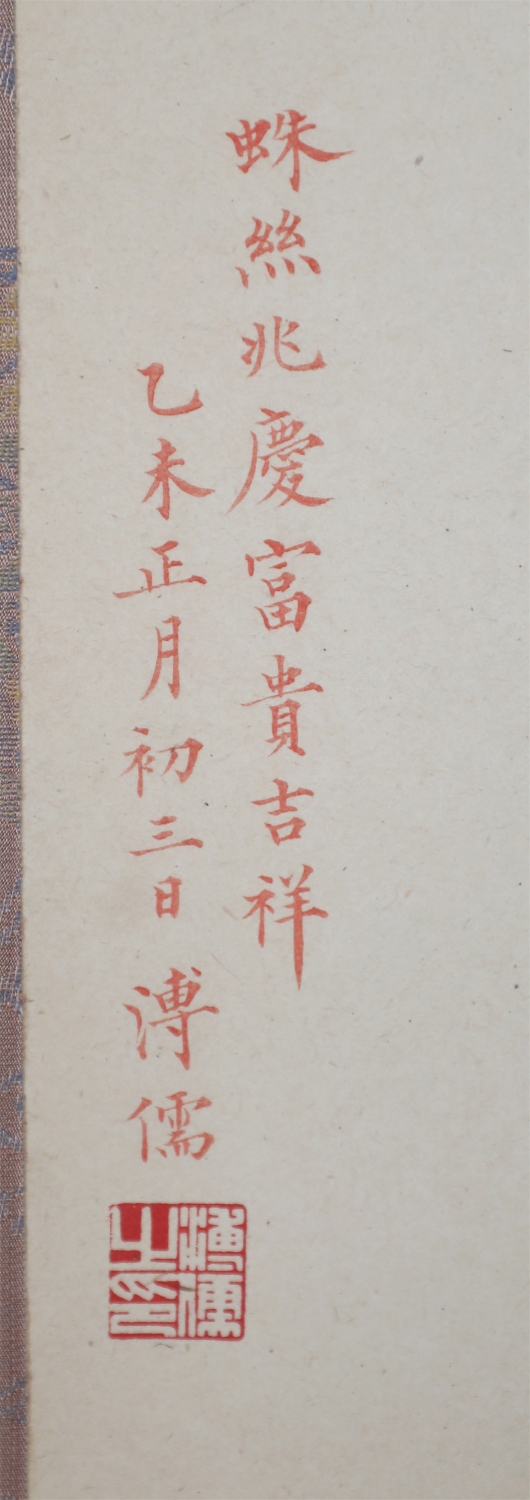 蛛絲兆慶富貴吉祥
乙未正月初三日 溥儒
溥儒之印